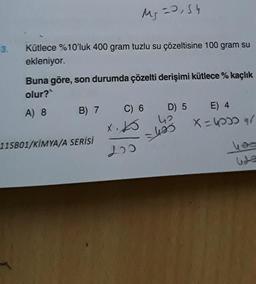 3. Kütlece %10'luk 400 gram tuzlu su çözeltisine 100 gram su
ekleniyor.
Buna göre, son durumda çözelti derişimi kütlece % kaçlık
olur?
A) 8 B) 7 C) 6 D) 5 E) 4
115B01/KİMYA/A SERİSİ